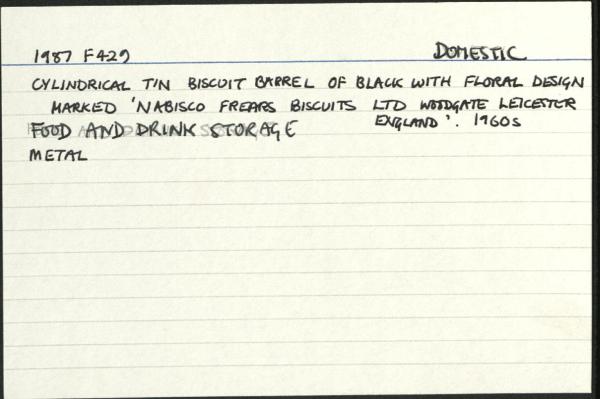 1987 F429 DOMESTIC
CYLINDRICAL TIN BISCUIT BARREL OF BLACK WITH FLORAL DESIGN
MARKED 'NABISCO FREARS BISCUITS LTD WOODGATE LEICESTER
ENGLAND'. 1960s
FOOD AND DRINK STORAGE
METAL